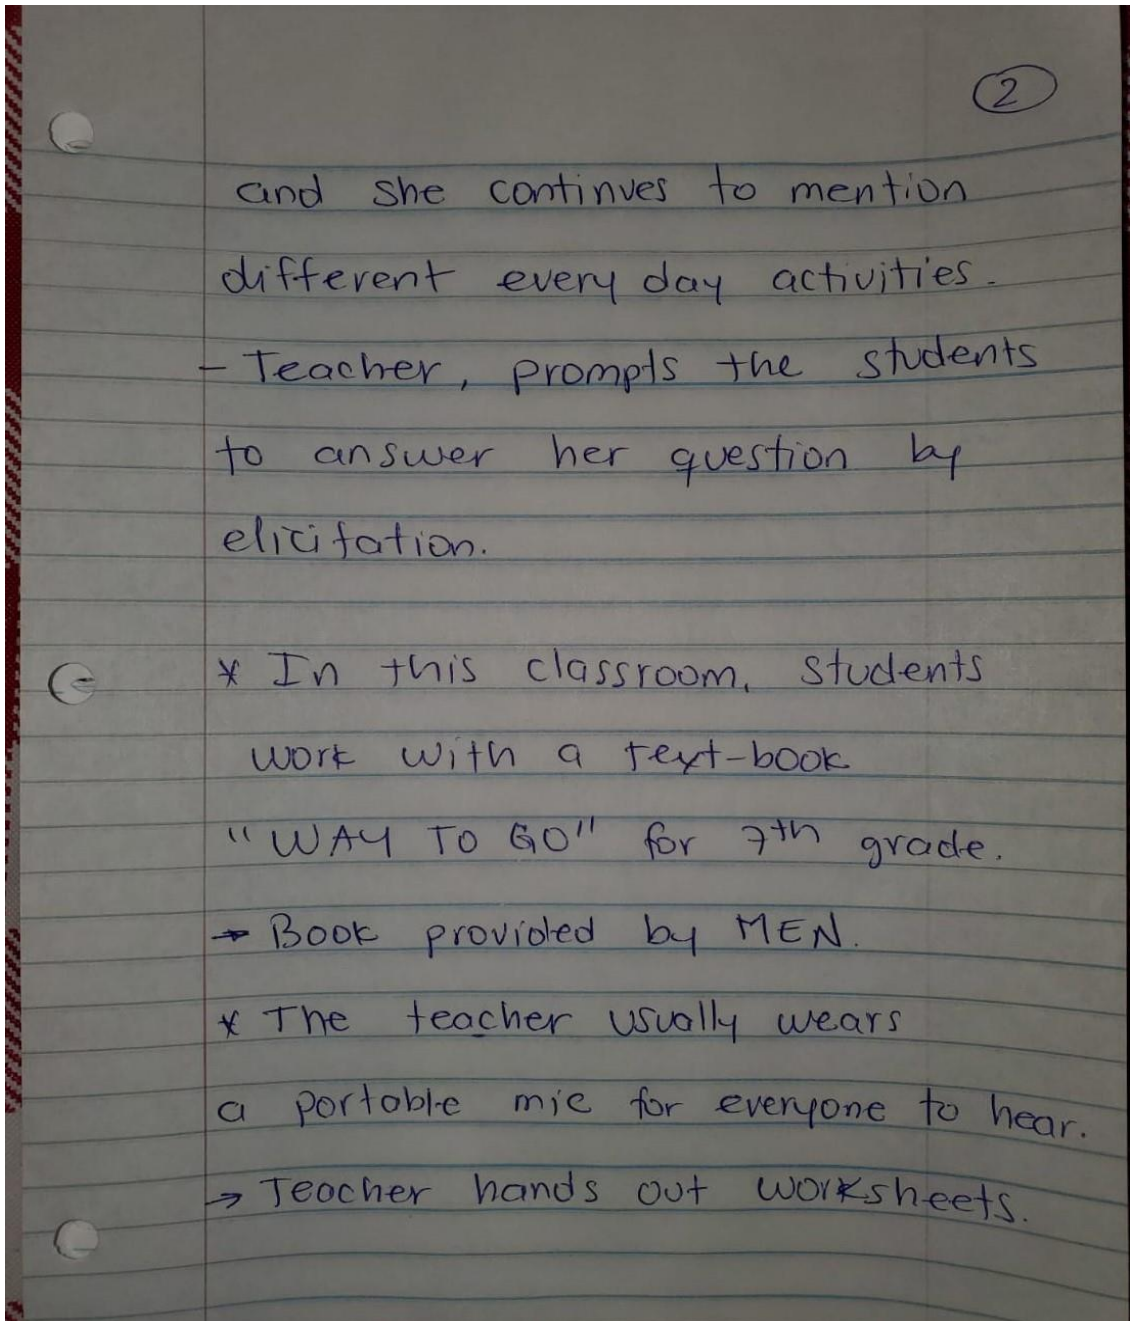 2
and she continues to mention
different every day activities.
- Teacher, prompts the students
to answer her question by
elicitation.
* In this classroom, students
work with a text-book
"WAY TO GO" for 7th grade.
→ Book provided by MEN.
* The teacher usually wears
a portable mic for everyone to hear.
→ Teacher hands out worksheets.